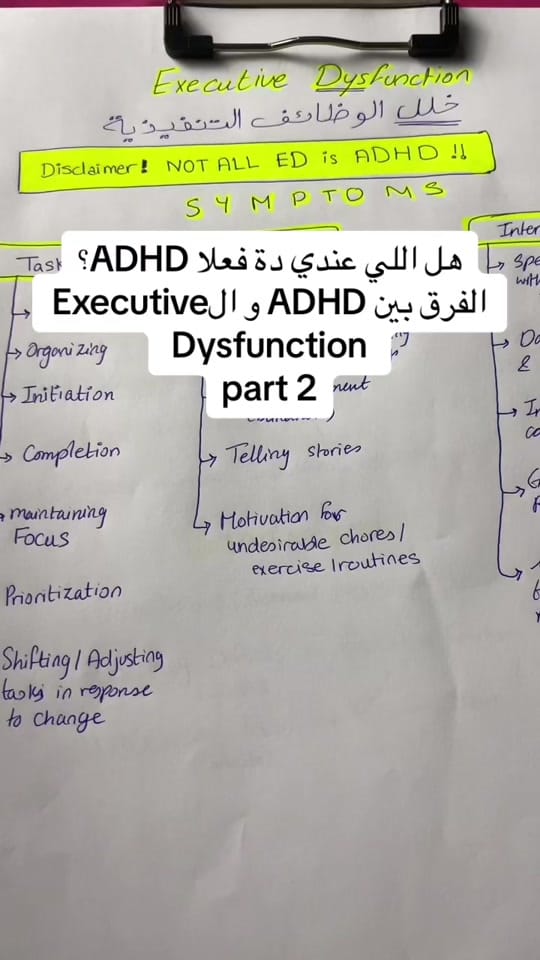 Executive Dysfunction
خلل الوظائف التنفيذية
Disclaimer! NOT ALL ED is ADHD !!
SYMPTOMS
هل اللي عندي دة فعلا ADHD؟
الفرق بين ADHD و الExecutive
Dysfunction
part 2
Task
→ Organizing
→ Initiation
→ Completion
→ maintaining
Focus
Prioritization
Shifting / Adjusting
tasks in response
to change
→ Telling stories
→ Motivation for
undesirable chores /
exercise / routines
Inter
→ Spe
with
→ Do
&